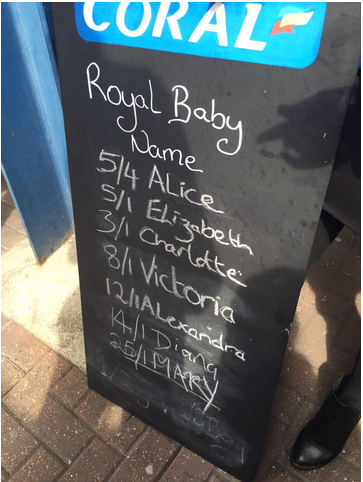 CORAL
Royal Baby
Name
5/4 Alice
5/1 Elizabeth
3/1 Charlotte
8/1 Victoria
12/1 Alexandra
14/1 Diana
25/1 MARY